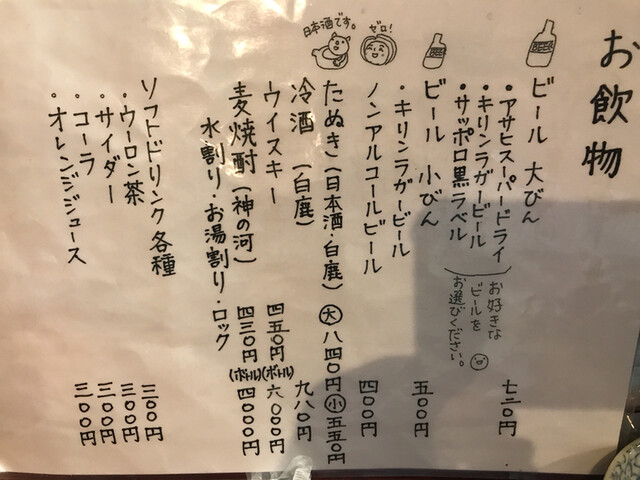 お飲物
ビール 大びん 七二〇円
・アサヒスーパードライ
・キリンラガービール
・サッポロ黒ラベル
お好きな
ビールを
お選びください。
BEER
ビール 小びん 五〇〇円
・キリンラガービール
ゼロ!
ノンアルコールビール 四〇〇円
日本酒です。
たぬき(日本酒・白鹿) 大 八四〇円 小 五五〇円
冷酒 (白鹿) 九八〇円
ウイスキー 四五〇円 (ボトル) 六〇〇〇円
麦焼酎(神の河) 四三〇円 (ボトル) 四〇〇〇円
水割り・お湯割り・ロック
ソフトドリンク各種 三〇〇円
・ウーロン茶 三〇〇円
・サイダー 三〇〇円
・コーラ
・オレンジジュース 三〇〇円